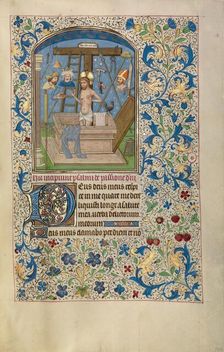 Hic incipiunt psalmi de passione dni
Deus deus meus respi
ce in me quare me dere
liquisti longe a salute
mea verba delictorum
meorum
Deus meus clamabo per diem et no